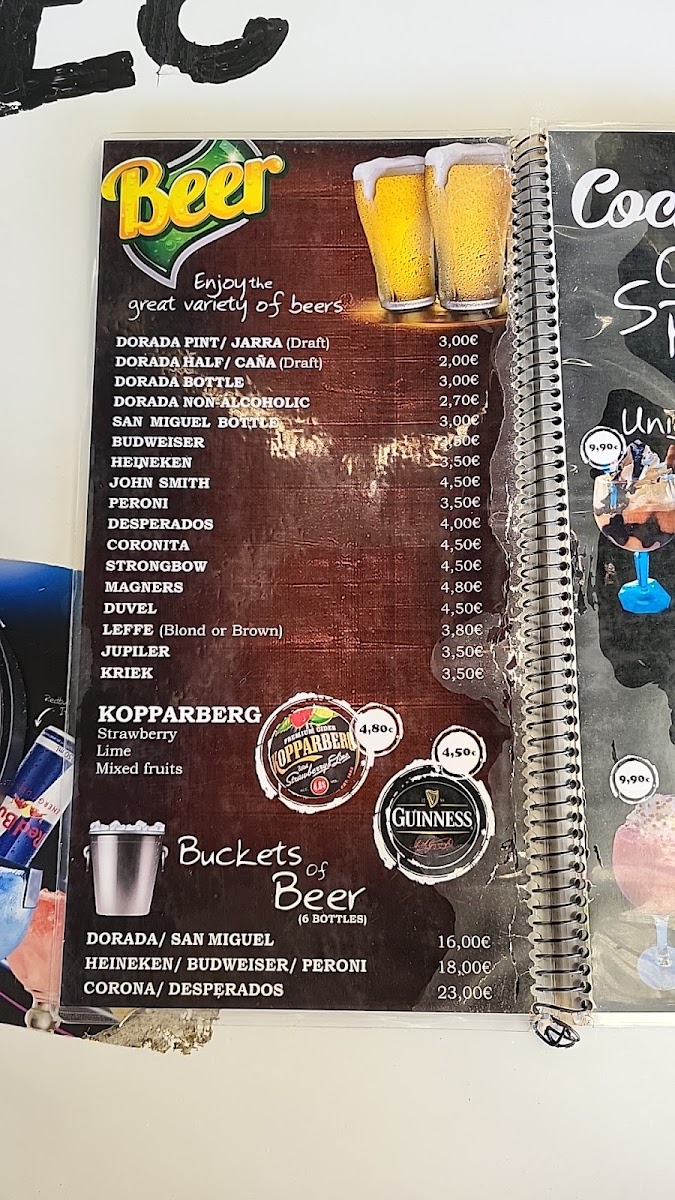 Beer
Enjoy the
great variety of beers
DORADA PINT/ JARRA (Draft) 3,00€
DORADA HALF/ CAÑA (Draft) 2,00€
DORADA BOTTLE 3,00€
DORADA NON-ALCOHOLIC 2,70€
SAN MIGUEL BOTTLE 3,00€
BUDWEISER 3,50€
HEINEKEN 3,50€
JOHN SMITH 4,50€
PERONI 3,50€
DESPERADOS 4,00€
CORONITA 4,50€
STRONGBOW 4,50€
MAGNERS 4,80€
DUVEL 4,50€
LEFFE (Blond or Brown) 3,80€
JUPILER 3,50€
KRIEK 3,50€
KOPPARBERG
Strawberry
Lime
Mixed fruits
PREMIUM CIDER
KOPPARBERG
Strawberry & Lime
4,80€
4,50€
GUINNESS
Buckets
Of
Beer
(6 BOTTLES)
DORADA/ SAN MIGUEL 16,00€
HEINEKEN/ BUDWEISER/ PERONI 18,00€
CORONA/ DESPERADOS 23,00€
Red Bull
9,90€
9,90€